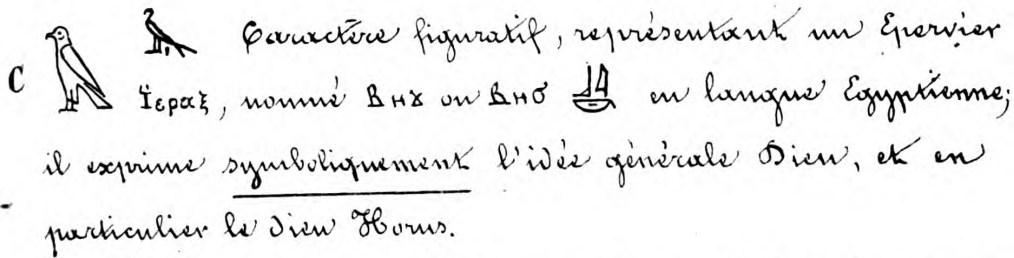 C Caractère figuratif, représentant un Epervier
Ϊεραξ, nommé ⲃⲏϫ ou ⲃⲏϭ en langue Egyptienne;
il exprime symboliquement l'idée générale Dieu, et en
particulier le dieu Horus.